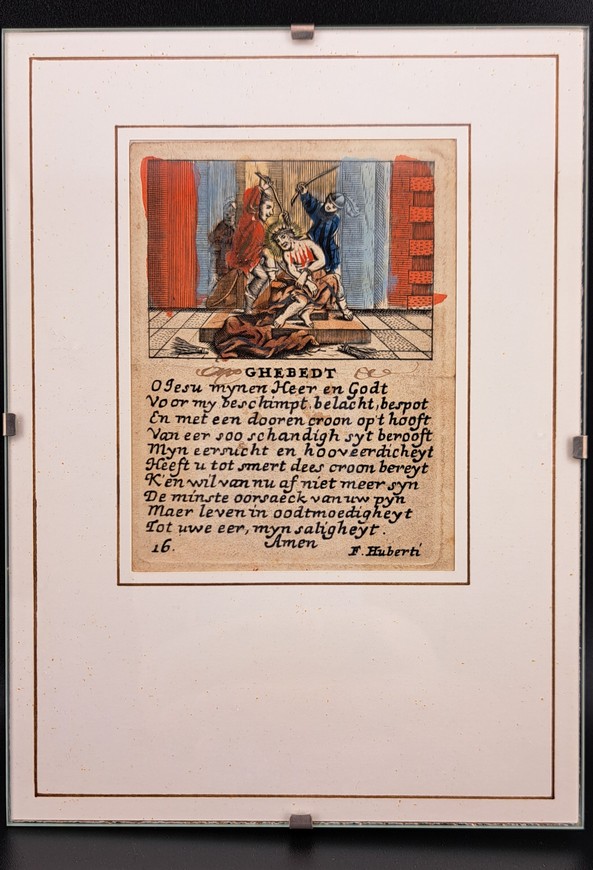 GHEBEDT
O Iesu mynen Heer en Godt
Voor my beschimpt, belacht, bespot
En met een dooren croon op't hooft
Van eer soo schandigh syt berooft
Myn eersucht en hooveerdicheyt
Heeft u tot smert dees croon bereyt
K'en wil van nu af niet meer syn
De minste oorsaeck van uw pyn
Maer leven in oodtmoedigheyt
Tot uwe eer, myn saligheyt.
Amen
16. F. Huberti